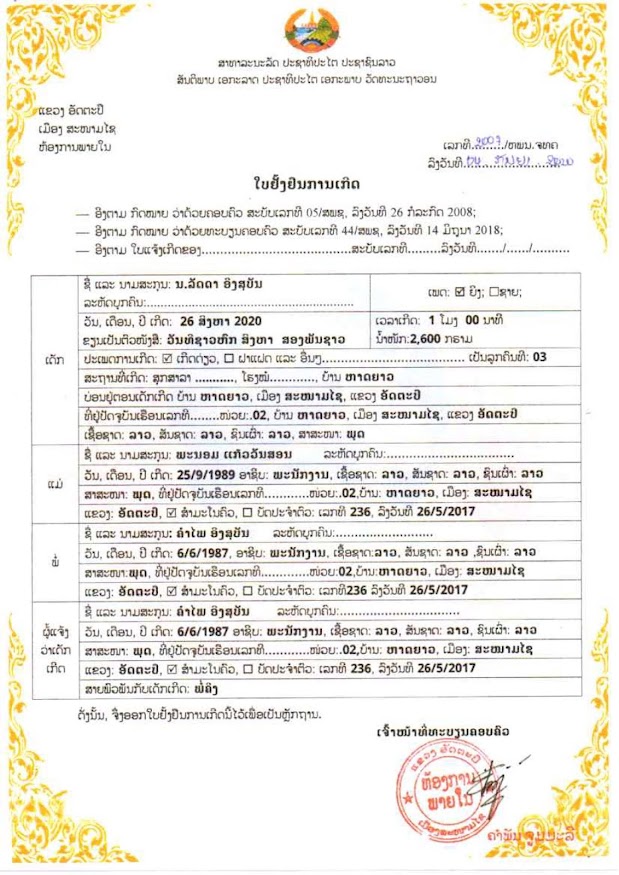 ສາທາລະນະລັດ ປະຊາທິປະໄຕ ປະຊາຊົນລາວ
ສັນຕິພາບ ເອກະລາດ ປະຊາທິປະໄຕ ເອກະພາບ ວັດທະນະຖາວອນ
ແຂວງ ອັດຕະປື
ເມືອງ ສະໜາມໄຊ
ຫ້ອງການພາຍໃນ
ເລກທີ.2007/ຫພນ.ຈທຄ
ລົງວັນທີ
ໃບຢັ້ງຢືນການເກີດ
— ອີງຕາມ ກົດໝາຍ ວ່າດ້ວຍຄອບຄົວ ສະບັບເລກທີ 05/ສພຊ, ລົງວັນທີ 26 ກໍລະກົດ 2008;
— ອີງຕາມ ກົດໝາຍ ວ່າດ້ວຍທະບຽນຄອບຄົວ ສະບັບເລກທີ 44/ສພຊ, ລົງວັນທີ 14 ມິຖຸນາ 2018;
— ອີງຕາມ ໃບແຈ້ງເກີດຂອງ.................................ສະບັບເລກທີ.........ລົງວັນທີ....../....../...........
ເດັກ
ຊື່ ແລະ ນາມສະກຸນ: ນ.ລັດດາ ອິງສຸບັນ
ລະຫັດບຸກຄົນ:....................................................
ເພດ: ☑ ຍິງ; ☐ຊາຍ;
ວັນ, ເດືອນ, ປີ ເກີດ: 26 ສິງຫາ 2020
ຂຽນເປັນຕົວໜັງສື: ວັນທີຊາວຫົກ ສິງຫາ ສອງພັນຊາວ
ເວລາເກີດ: 1 ໂມງ 00 ນາທີ
ນ້ຳໜັກ:2,600 ກຣາມ
ປະເພດການເກີດ: ☑ ເກີດດ່ຽວ, ☐ ຝາແຝດ ແລະ ອື່ນໆ.................................... ເປັນລູກຄົນທີ: 03
ສະຖານທີ່ເກີດ: ສຸກສາລາ ..........., ໂຮງໝໍ............, ບ້ານ ຫາດຍາວ
ບ່ອນຢູ່ຕອນເດັກເກີດ ບ້ານ ຫາດຍາວ, ເມືອງ ສະໜາມໄຊ, ແຂວງ ອັດຕະປື
ທີ່ຢູ່ປັດຈຸບັນເຮືອນເລກທີ........ໜ່ວຍ:.02, ບ້ານ ຫາດຍາວ, ເມືອງ ສະໜາມໄຊ, ແຂວງ ອັດຕະປື
ເຊື້ອຊາດ: ລາວ, ສັນຊາດ: ລາວ, ຊົນເຜົ່າ: ລາວ, ສາສະໜາ: ພຸດ
ແມ່
ຊື່ ແລະ ນາມສະກຸນ: ພະນອມ ແກ້ວວັນສອນ ລະຫັດບຸກຄົນ:................................
ວັນ, ເດືອນ, ປີ ເກີດ: 25/9/1989 ອາຊີບ: ພະນັກງານ, ເຊື້ອຊາດ: ລາວ, ສັນຊາດ: ລາວ, ຊົນເຜົ່າ: ລາວ
ສາສະໜາ: ພຸດ, ທີ່ຢູ່ປັດຈຸບັນເຮືອນເລກທີ...........ໜ່ວຍ:.02,ບ້ານ: ຫາດຍາວ, ເມືອງ: ສະໜາມໄຊ
ແຂວງ: ອັດຕະປື, ☑ ສຳມະໂນຄົວ, ☐ ບັດປະຈຳຕົວ: ເລກທີ 236, ລົງວັນທີ 26/5/2017
ພໍ່
ຊື່ ແລະ ນາມສະກຸນ: ຄຳໄພ ອິງສຸບັນ ລະຫັດບຸກຄົນ:.........................
ວັນ, ເດືອນ, ປີ ເກີດ: 6/6/1987, ອາຊີບ: ພະນັກງານ, ເຊື້ອຊາດ:ລາວ, ສັນຊາດ: ລາວ ,ຊົນເຜົ່າ: ລາວ
ສາສະໜາ:ພຸດ, ທີ່ຢູ່ປັດຈຸບັນເຮືອນເລກທີ............ໜ່ວຍ:02,ບ້ານ:ຫາດຍາວ, ເມືອງ: ສະໜາມໄຊ
ແຂວງ: ອັດຕະປື, ☑ ສຳມະໂນຄົວ, ☐ ບັດປະຈຳຕົວ: ເລກທີ236 ລົງວັນທີ 26/5/2017
ຜູ້ແຈ້ງ
ວ່າເດັກ
ເກີດ
ຊື່ ແລະ ນາມສະກຸນ: ຄຳໄພ ອິງສຸບັນ ລະຫັດບຸກຄົນ:..............................
ວັນ, ເດືອນ, ປີ ເກີດ: 6/6/1987 ອາຊີບ: ພະນັກງານ, ເຊື້ອຊາດ: ລາວ, ສັນຊາດ: ລາວ, ຊົນເຜົ່າ: ລາວ
ສາສະໜາ: ພຸດ, ທີ່ຢູ່ປັດຈຸບັນເຮືອນເລກທີ...........ໜ່ວຍ:.02,ບ້ານ: ຫາດຍາວ, ເມືອງ: ສະໜາມໄຊ
ແຂວງ: ອັດຕະປື, ☑ ສຳມະໂນຄົວ, ☐ ບັດປະຈຳຕົວ: ເລກທີ 236, ລົງວັນທີ 26/5/2017
ສາຍພົວພັນກັບເດັກເກີດ: ພໍ່ຄີງ
ດັ່ງນັ້ນ, ຈຶ່ງອອກໃບຢັ້ງຢືນການເກີດນີ້ໄວ້ເພື່ອເປັນຫຼັກຖານ.
ເຈົ້າໜ້າທີ່ທະບຽນຄອບຄົວ
ແຂວງ ອັດຕະປື
ຫ້ອງການ
ພາຍໃນ
ເມືອງສະໜາມໄຊ
ຄຳພັນ